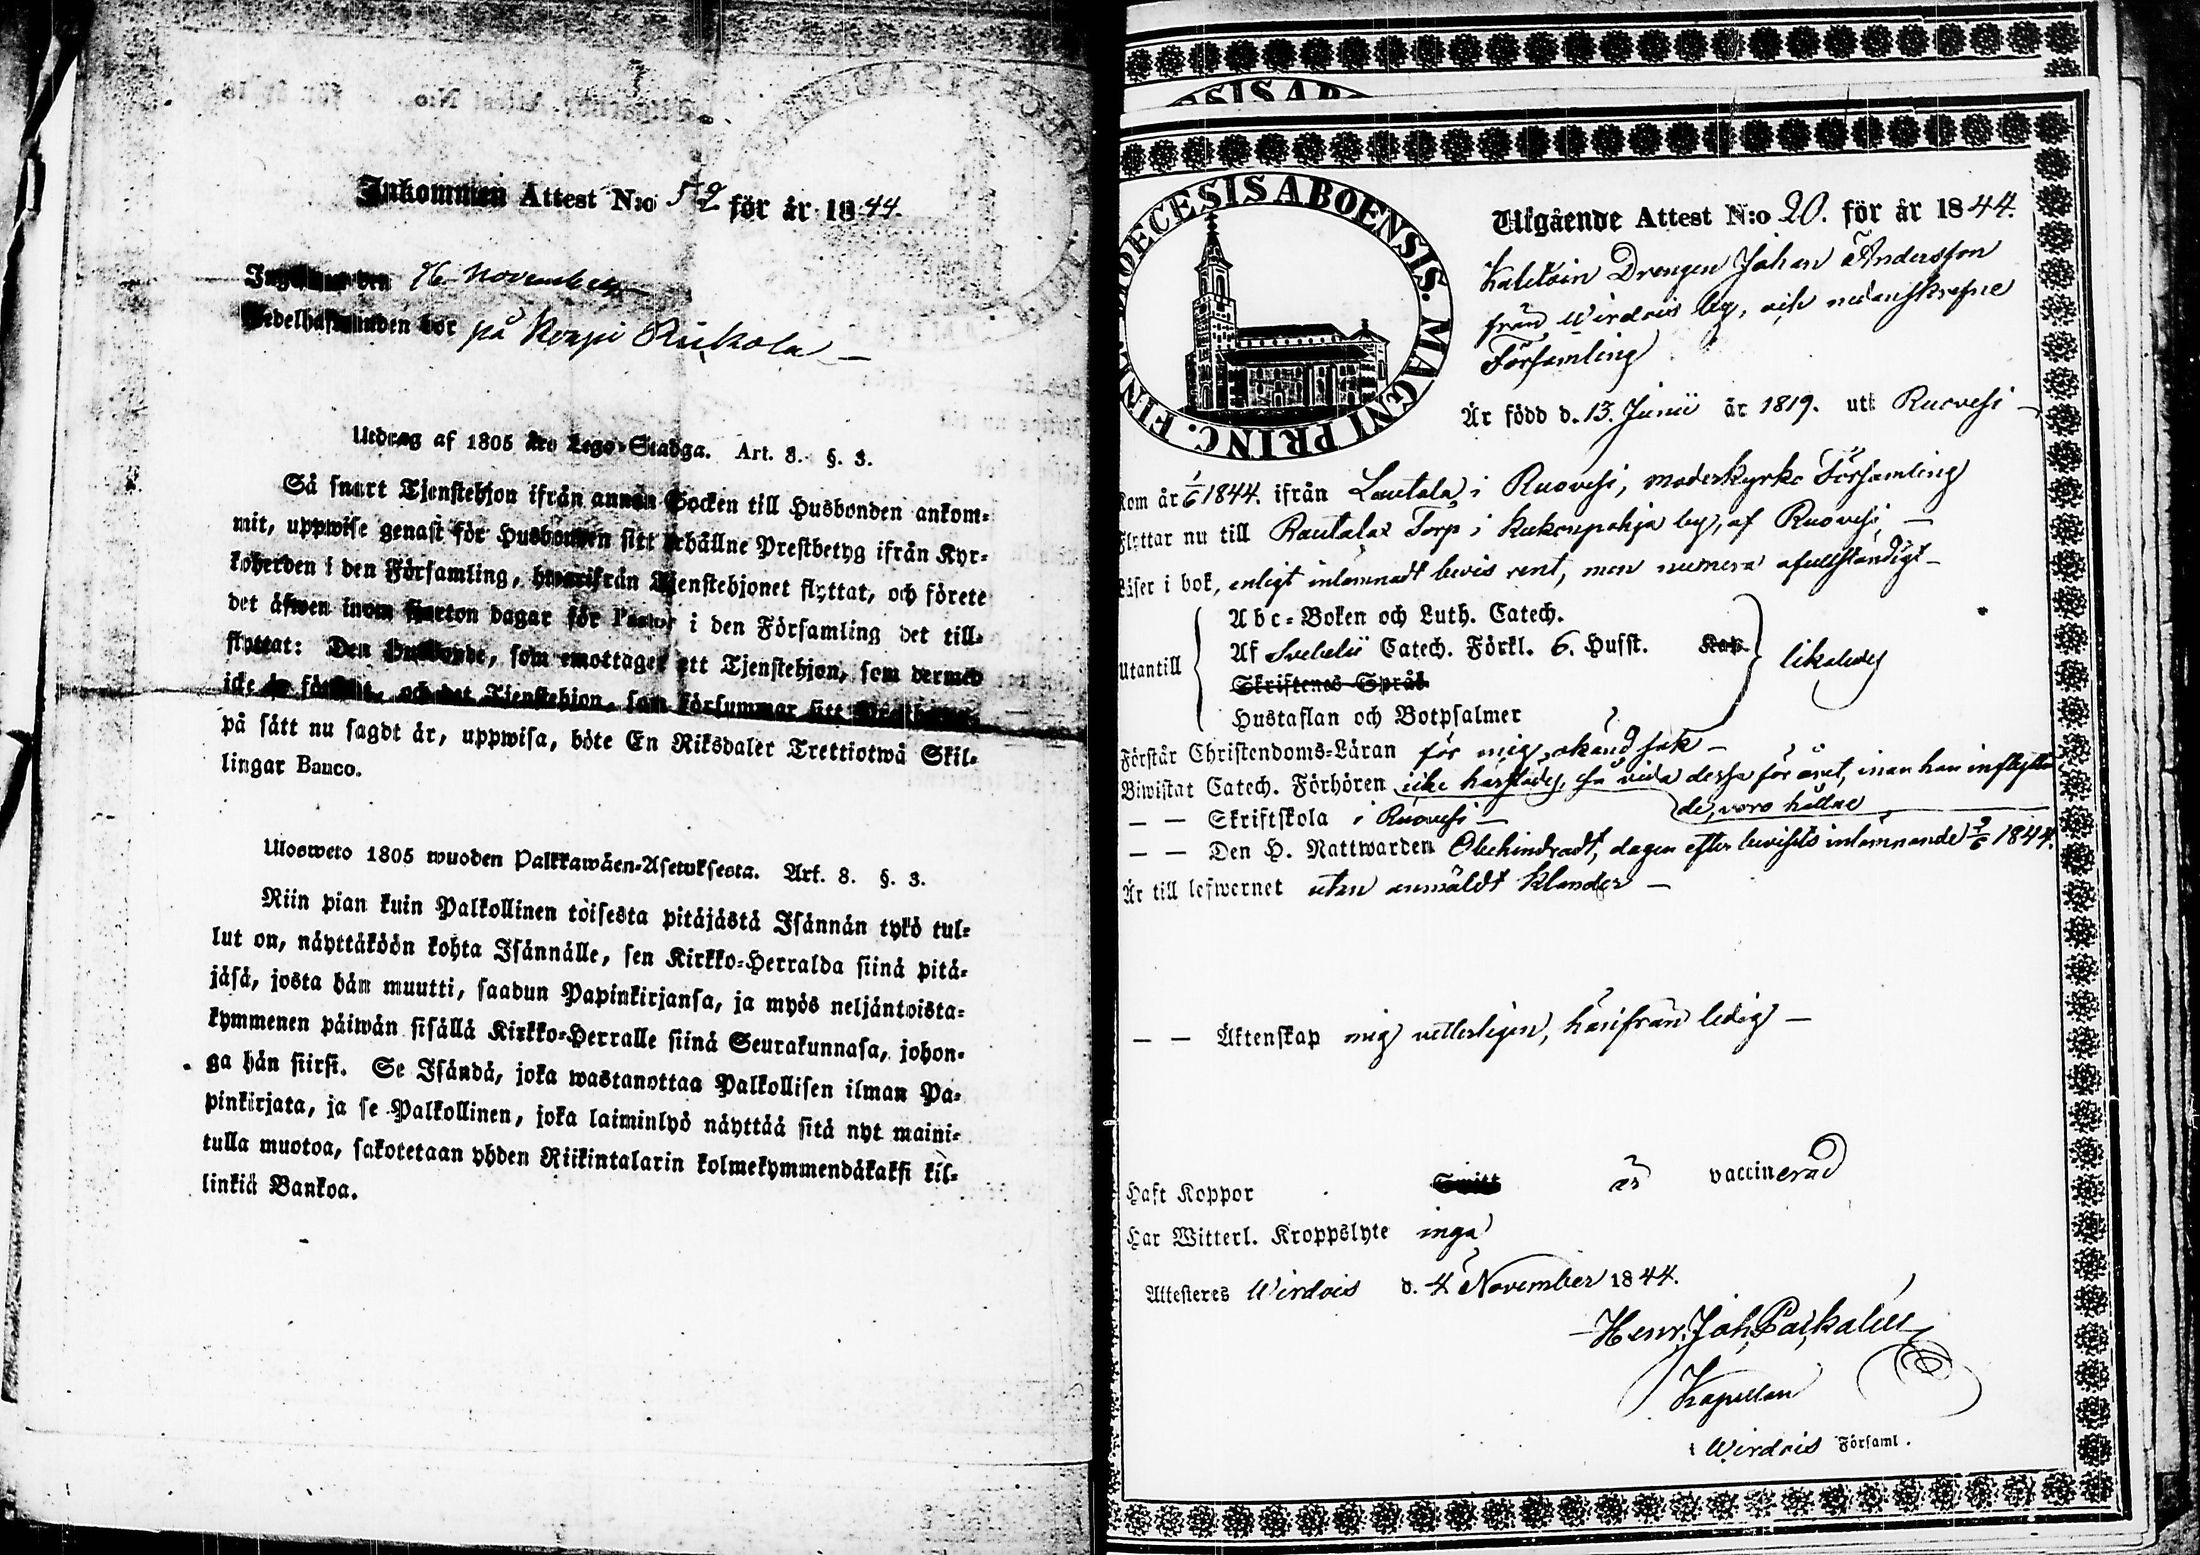 Inkommen Attest N:o 52 för år 1844.
Ingifwen den 16 November
Medelhafwanden bor på Korpi Riikola
Utdrag af 1805 års Lego-Stadga. Art. 8. §. 3.
Så snart Tjenstehjon ifrån annan Socken till Husbonden ankom-
mit, uppwise genast för Husbonden sitt erhållne Prestbetyg ifrån Kyr-
koherden i den Församling, hwarifrån Tjenstehjonet flyttat, och förete
det äfwen inom fjorton dagar för Pastor i den Församling det till-
flyttat: Den Husbonde, som emottager ett Tjenstehjon, som dermed
icke är försedt, och det Tjenstehjon, som försummar sitt Prestbetyg,
på sätt nu sagdt är, uppwisa, böte En Riksdaler Trettiotwå Skil-
lingar Banco.
Ulosweto 1805 wuoden Palkkawäen-Asetuksesta. Art. 8. §. 3.
Niin pian kuin Palkollinen toisesta pitäjästä Isännän tykö tul-
lut on, näyttäköön kohta Isännälle, sen Kirkko-Herralda siinä pitä-
jäsä, josta hän muutti, saadun Papinkirjansa, ja myös neljäntoista-
kymmenen päiwän sisällä Kirkko-Herralle siinä Seurakunnasa, johon-
ga hän siirsi. Se Isändä, joka wastanottaa Palkollisen ilman Pa-
pinkirjata, ja se Palkollinen, joka laiminlyö näyttää sitä nyt maini-
tulla muotoa, sakotetaan yhden Riikintalarin kolmekymmendäkaksi kil-
linkiä Bankoa.
DIOECESIS ABOENSIS. MAGNI PRINC. FINL.
Utgående Attest N:o 20. för år 1844.
Drengen Johan Andersson
från Wirdois by, och nedanskrefne
Församling
Är född d. 13. Junii år 1819. uti Ruovesi
Kom år 1/6 1844. ifrån Lautala i Ruovesi, moderkyrko Församling
Flyttar nu till Rautala Torp i Kukonpohja by, af Ruovesi
Läser i bok, enligt inlemnadt bevis rent, men numera ofullständigt
Utantill
Abc-Boken och Luth. Catech.
Af Svebelii Catech. Förkl. 6. Hufst. Kap.
Skriftenes Språk
Hustaflan och Botpsalmer
likaledes
Förstår Christendoms-Läran för mig okänd sak
Biwistat Catech. Förhören icke härstädes, så vida dessa för året, innan han inflytta
de, voro hållne
— — Skriftskola i Ruovesi
— — Den H. Nattwarden Obehindradt, dagen efter bevisets inlemnande 2/6 1844.
Är till lefwernet utan anmäldt klander
— — Äktenskap mig vetterligen, härifrån ledig
Haft Koppor är vaccinerad
Har Witterl. Kroppslyte inga
Attesteres Wirdois d. 4 November 1844.
Henr. Joh.
Kapellan
i Wirdois Församl.